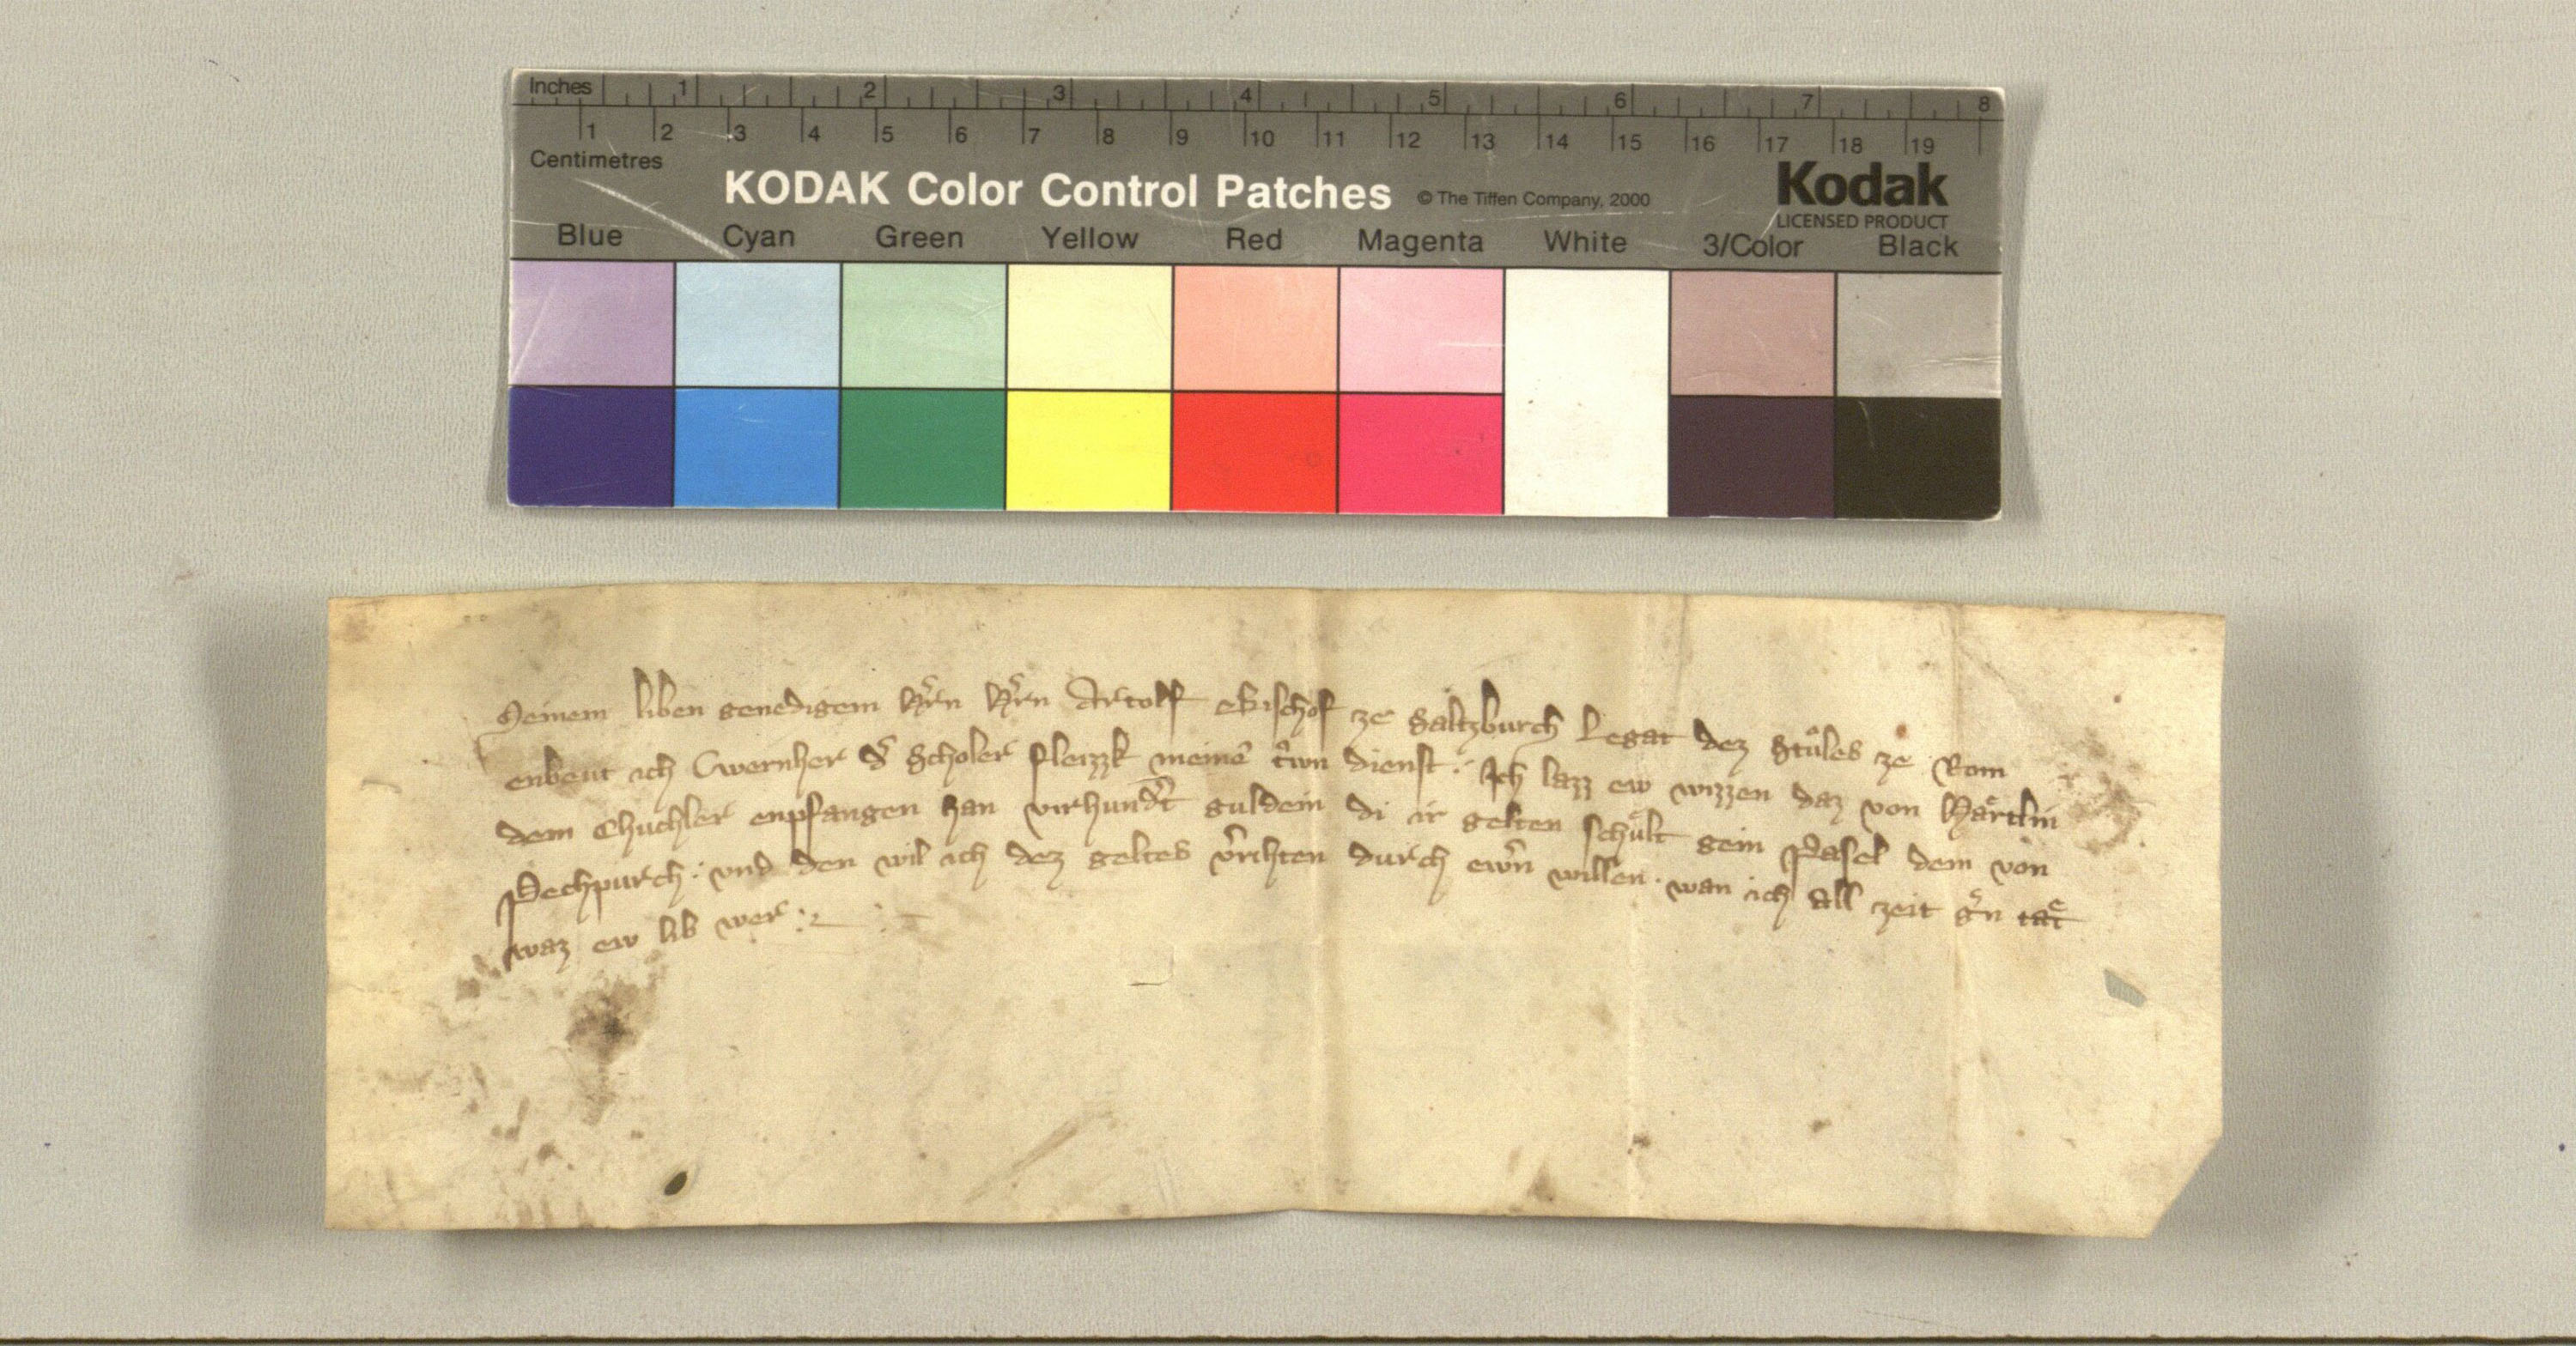 Inches 1 2 3 4 5 6 7 8
1 2 3 4 5 6 7 8 9 10 11 12 13 14 15 16 17 18 19
Centimetres
KODAK Color Control Patches © The Tiffen Company, 2000 Kodak
LICENSED PRODUCT
Blue Cyan Green Yellow Red Magenta White 3/Color Black
Meinem liben genedigem h̄rn h̄rn Artolf Bischof ze Saltzburch Legat dez Stůles ze Rom
enbeut ich Wernher d̄ Scholer fleizzk meinē t̄wn dienst. Ich lazz ew wizzen daz von Haͤrtlin
dem Chuchler enpfangen han virhund̄t guldein di ir gelten schuͤlt gein Pasel dem von
Pechpurch. vnd den wil ich dez geltes v̄richten durch ew̄n willen. wan ich all zeit ḡn taͤt
waz ew lib wer